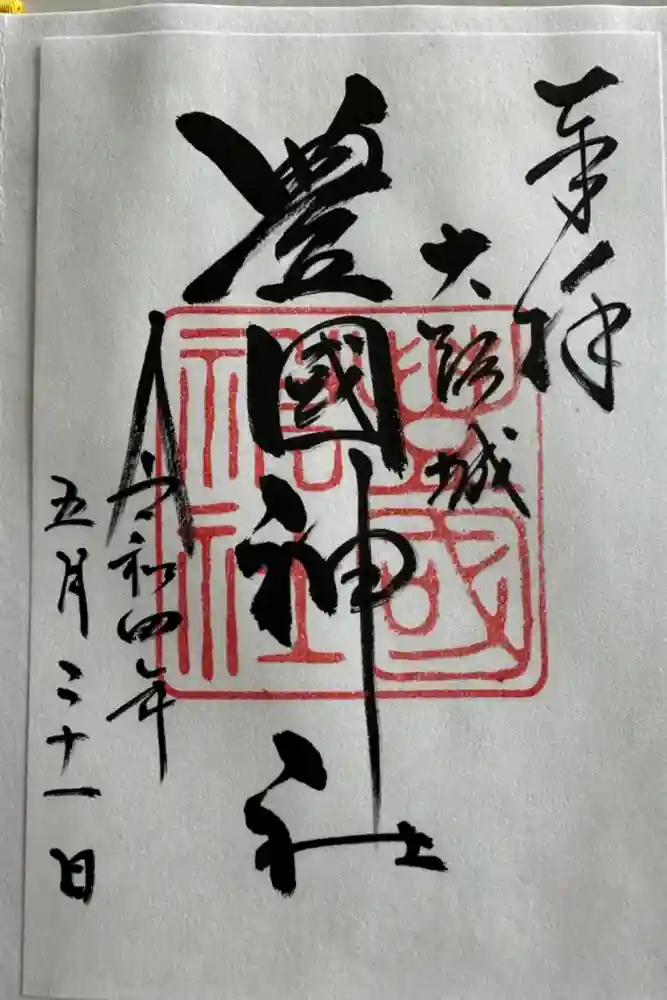 奉拝
大阪城
豊國神社
令和四年
五月二十一日
豊國神社